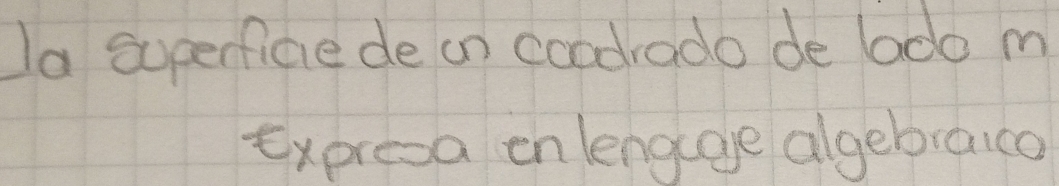 la superficie de un coadrado de lado m
Expresa en lenguage algebraico